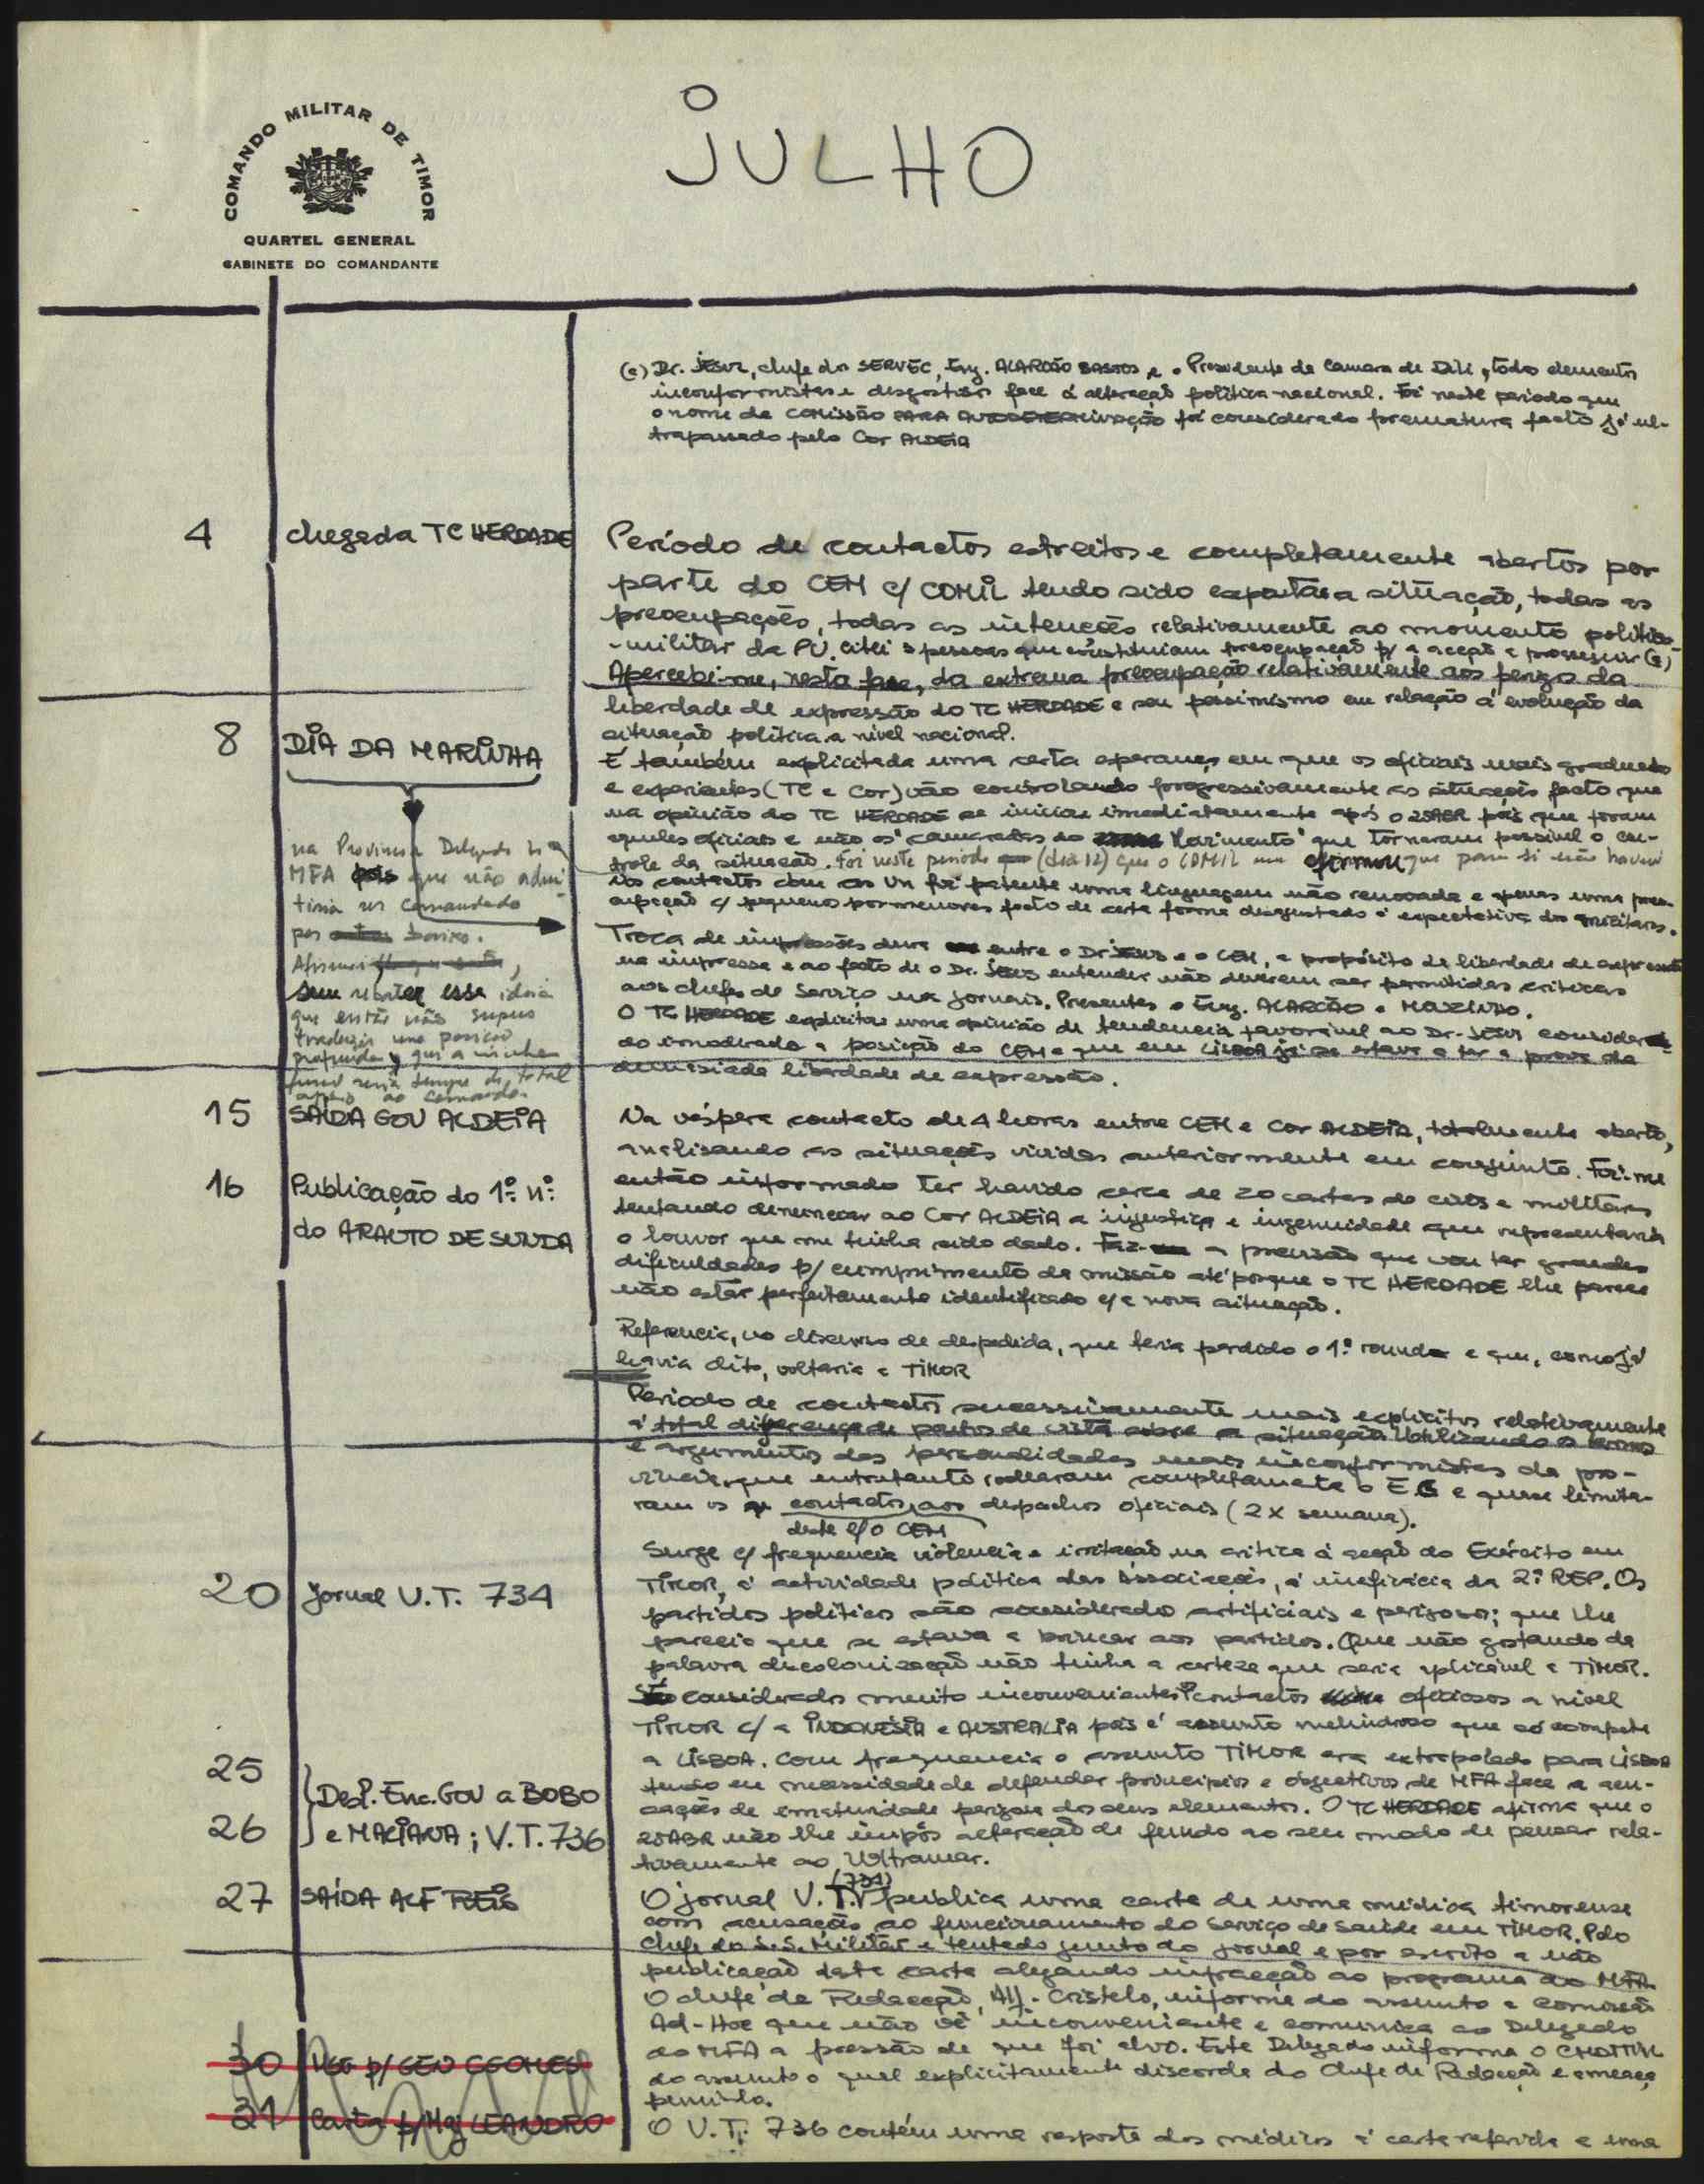 COMANDO MILITAR DE TIMOR
QUARTEL GENERAL
GABINETE DO COMANDANTE
JULHO
(a) Dr. JESUS, chefe dos SERVEC, Eng. ALARCÃO BASTOS e o Presidente da Camara de Dili, todos elementos
inconformistas e desgostosos face á alteração política nacional. Foi neste periodo que
o nome da COMISSÃO PARA AUTODETERMINAÇÃO foi considerado prematura facto já ul-
trapassado pelo Cor ALDEIA
4 chegada TC HERDADE
Período de contactos estreitos e completamente abertos por
parte do CEM c/ COMIL tendo sido exposta a situação, todas as
preocupações, todas as intenções relativamente ao momento político
-militar da PU. Citei as pessoas que constituiam preocupação p/ a acção a prosseguir (a)
Apercebi-me, nesta fase, da extrema preocupação relativamente aos perigos da
liberdade de expressão do TC HERDADE e seu pessimismo em relação á evolução da
situação política a nível nacional.
8 DIA DA MARINHA
É também explicitada uma certa esperança em que os oficiais mais graduados
e experientes (TC e Cor) vão controlando progressivamente as situações facto que
na opinião do TC HERDADE se iniciou imediatamente após o 25ABR pois que foram
aqueles oficiais e não os "camaradas do Movimento" que tornaram possível o con-
trole da situação. Foi neste periodo (dia 12) que o COMIL me afirmou que para si não havia
na Provincia Delegado do
MFA pois que não admi
tiria ser comandado
por baixo.
Afirmou
sem rebater essa ideia
que então não supus
traduzir uma posição
profunda, que a minha
função seria sempre de total
apoio ao comando.
Nos contactos com as Un foi patente uma linguagem não renovada e apenas uma preo-
cupação c/ pequenos pormenores facto de certa forma desajustado á expectativa dos militares.
Troca de impressões dura entre o Dr JESUS e o CEM, a propósito da liberdade de expressão
na imprensa e ao facto de o Dr. JESUS entender não deverem ser permitidas criticas
aos chefes de Serviço nos jornais. Presentes o Eng. ALARCÃO e
O TC HERDADE explicitou uma opinião de tendencia favorável ao Dr. JESUS consideran-
do imoderada a posição do CEM e que em LISBOA já se estava a ter a prova da
demasiada liberdade de expressão.
15 SAÍDA GOV ALDEIA
Na véspera contacto de 4 horas entre CEM e Cor ALDEIA, totalmente aberto,
analisando as situações vividas anteriormente em conjunto. Foi-me
16 Publicação do 1º nº
do ARAUTO DE SUNDA
então informado ter havido cerca de 20 cartas de civis e militares
tentando denunciar ao Cor ALDEIA a injustiça e ingenuidade que representaria
o louvor que me tinha sido dado. Faz a previsão que vou ter grandes
dificuldades p/ cumprimento da missão até porque o TC HERDADE lhe parece
não estar perfeitamente identificado c/ a nova situação.
Referencia, no discurso de despedida, que teria perdido o 1º round e que, como já
havia dito, voltaria a TIMOR
Periodo de contactos sucessivamente mais explicitos relativamente
á total diferença de pontos de vista sobre a situação. Utilizando os termos
e argumentos das personalidades mais inconformistas da pro-
víncia que entretanto rodearam completamente o E.G e quase limita-
ram os contactos aos despachos oficiais (2 x semana).
deste c/ o CEM
Surge c/ frequencia violencia e irritação na critica á acção do Exército em
20 Jornal V.T. 734
TIMOR, á actividade política das associações, á ineficácia da 2ª REP. Os
partidos politicos são considerados artificiais e perigosos; que lhe
parecia que se estava a brincar aos partidos. Que não gostando da
palavra descolonização não tinha a certeza que seria aplicável a TIMOR.
São considerados muito inconvenientes contactos oficiosos a nível
TIMOR c/ a INDONÉSIA e AUSTRALIA pois é assunto melindroso que só compete
25
26
Desl. Enc. GOV a BOBO
e MALIANA; V.T. 736
a LISBOA. Com frequencia o assunto TIMOR era extrapolado para LISBOA
tendo eu necessidade de defender princípios e objectivos do MFA face a acu-
sações de imaturidade perigosa dos seus elementos. O TC HERDADE afirma que o
25ABR não lhe impôs alteração de fundo ao seu modo de pensar rela-
tivamente ao Ultramar.
27 SAÍDA ALF REIS
(734)
O jornal V.T. publica uma carta de uma médica timorense
com acusações ao funcionamento do Serviço de Saúde em TIMOR. Pelo
Chefe do S.S. Militar é tentado junto do jornal e por escrito a não
publicação desta carta alegando infracção ao programa do MFA
O chefe da Redacção, Alf. Cristelo, informa do assunto a Comissão
Ad-Hoc que não vê inconveniente e comunica ao Delegado
30 MSG p/ GEN CGOMES
do MFA a pressão de que foi alvo. Este Delegado informa o
do assunto o qual explicitamente discorda do Chefe da Redacção e ameaça
31 Carta p/ Maj LEANDRO
puni-lo.
O V.T. 736 contém uma resposta dos médicos á carta referida e uma